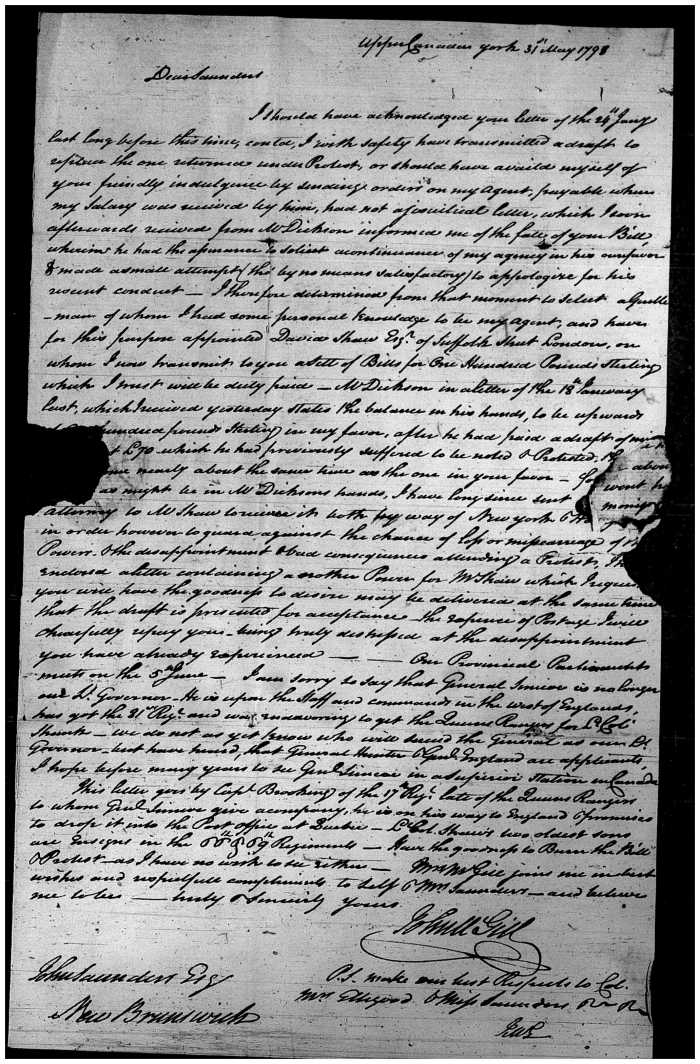 Upper Canada York 31st May 1798
Dear Saunders
I should have acknowledged your letter of the 24th Jany
last long before this time, could I with safety have transmitted a draft to
replace the one returned under Protest, or should have availd myself of
your friendly indulgence by sending orders on my Agent, payable when
my Salary was recieved by him, had not a letter, which I soon
afterwards recieved from Mr Dickson informed me of the fate of your Bill
wherein he had the assurance to solicit a continuance of my agency in his favor
& made a small attempt (tho' by no means satisfactory) to appologize for his
recent conduct — I therefore determined from that moment to select a Gentle
-man of whom I had some personal knowledge to be my Agent, and have
for this purpose appointed David Shaw Esqr. of Suffolk Street London, on
whom I now transmit to you a Sett of Bills for One Hundred Pounds Sterling
which I trust will be duly paid — Mr Dickson in a letter of the 18th January
last, which I received yesterday states the balance in his hands, to be upwards
hundred pounds Sterling in my favor, after he had paid a draft of mine
£70 which he had previously suffered to be noted & Protested, the
nearly about the same time as the one in your favor — abou
as might be in Mr Dicksons hands, I have long since sent wont
attorney to Mr Shaw to recieve it both by way of New York & mony
in order however to guard against the chance of loss or miscarriage of
Powers & the disappointment & bad consequences attending a Protest, I
Endorsd a letter containing another Power for Mr Shaw which I reques
you will have the goodness to desire may be delivered at the same time
that the draft is presented for acceptance the expence of Postage I will
chearfully repay you being truly distressed at the disappointment
you have already experienced — — — Our Provincial Parliament
meets on the 5th June — I am sorry to say that General Simcoe is no longer
our Lt. Governor — He is upon the Staff and commands in the west of England,
has got the 81st Regt. and was endeavoring to get the Queens Rangers for Lt Col
Shank — we do not as yet know who will succeed the General as our Lt.
Governor — but have heard, that General Hunter & Genl. England are applicants,
I hope before many years to see Genl. Simcoe in a Superior Station in Canada
This letter goes by Capt. Brooking of the 17th Regt. late of the Queens Rangers
to whom Genl. Simcoe give a company, he is on his way to England & promises
to drop it into the Post office at Quebec — Lt Col. Shaw's two oldest sons
are Ensigns in the 60th & 69th Regiments — Have the goodness to Burn the Bill
& Protest — as I have no wish to see either — Mrs McGill joins me in best
wishes and respectfull compliments to self & Mrs Saunders — and believe
me to be — truly & Sincerely yours
John McGill
John Saunders Esq
New Brunswick
P.S. make our best Respects to Col.
Mrs Ellegood & Miss Saunders